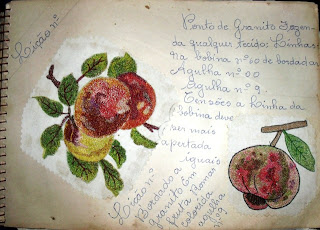 Lição nº
Ponto de Granito Fazen-
da qualquer tecido; Linhas
na bobina nº 60 de bordado
Agulha nº 00
Agulha nº 9.
Tensões a linha da
bobina deve
ser mais
apertada
iguais
Lição nº
Bordado a
granito Em
fruta Romas
colorida
agulha
nº 9